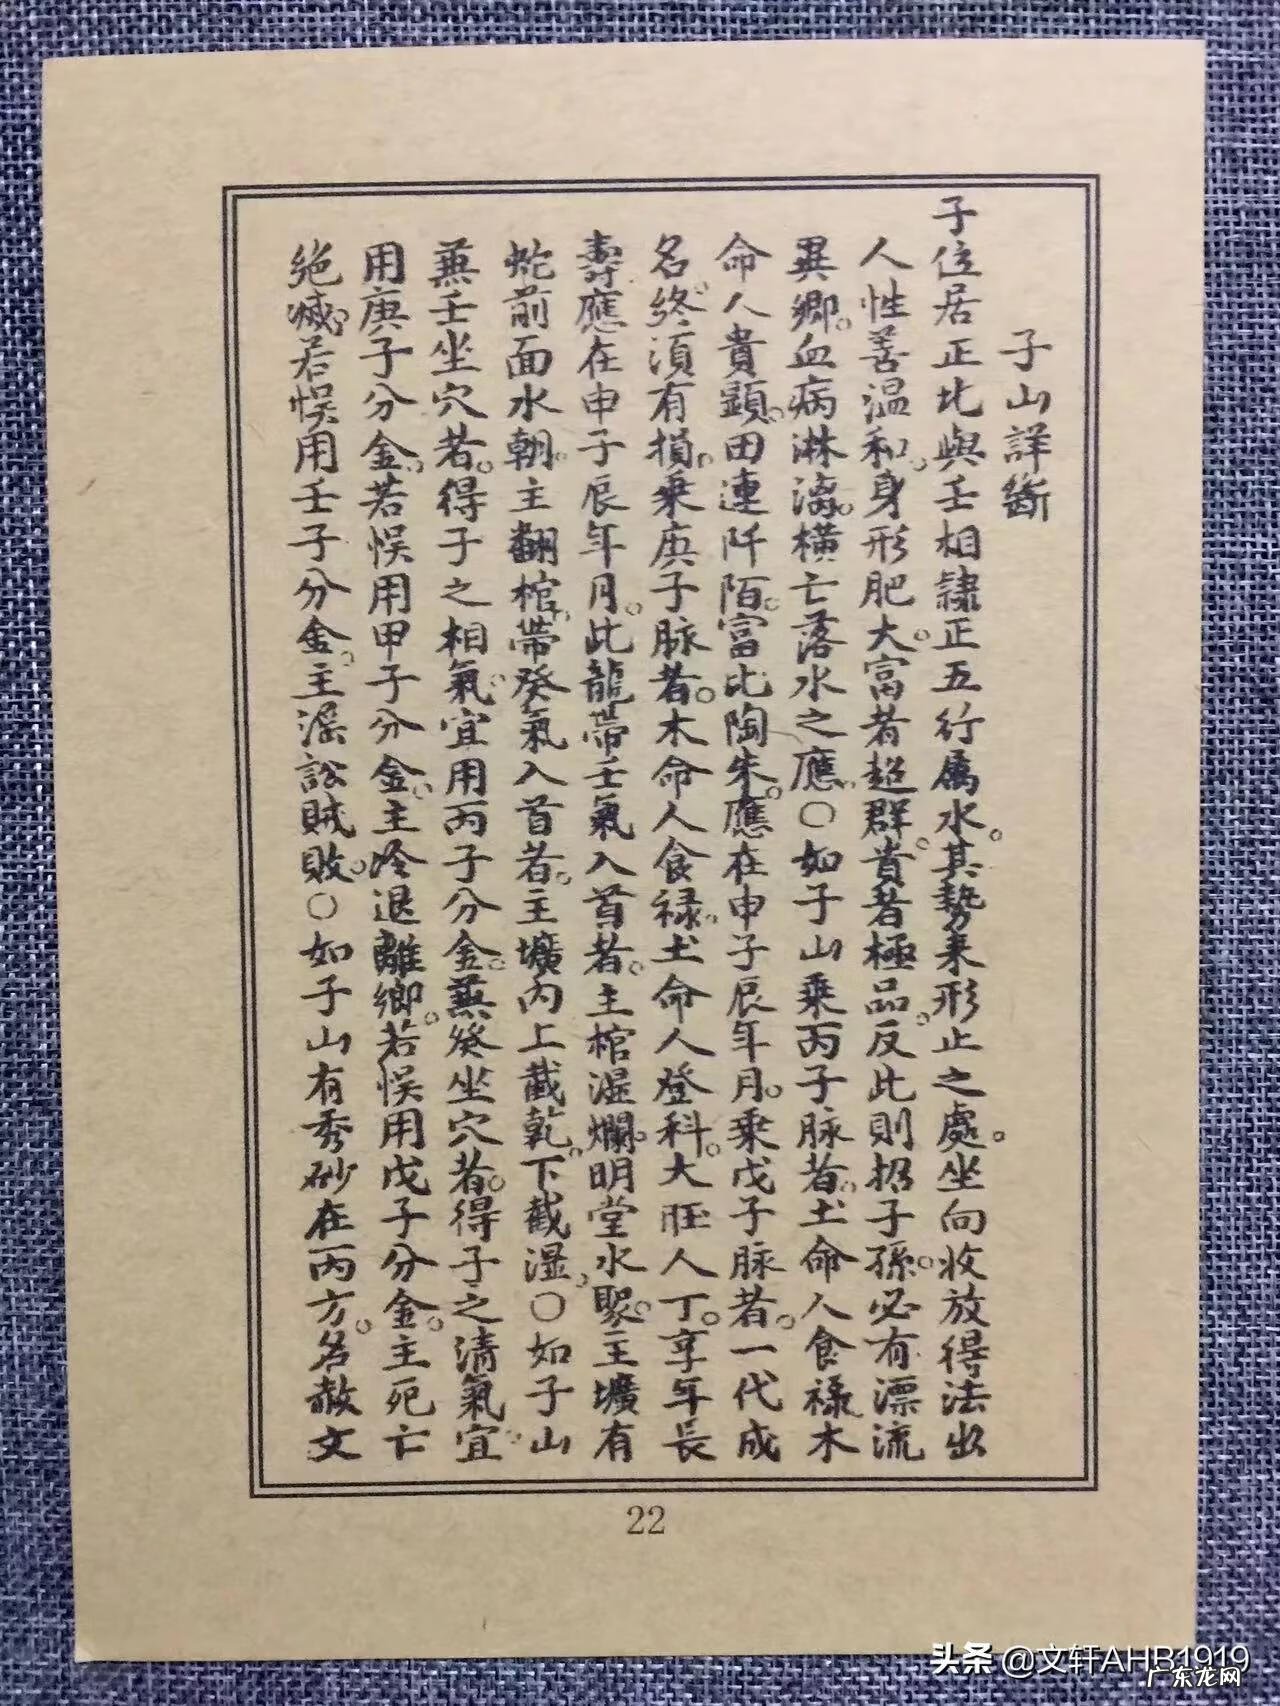 子山詳斷
子位居正北與壬相隸正五行属水。其勢来形止之處。坐向收放得法出
人性善温和。身形肥大。富者超群。貴者極品。反此則招子孫。必有漂流
異鄉。血病淋漓。横亡落水之應。○如子山乘丙子脉者。土命人食禄木
命人貴顯。田連阡陌。富比陶朱。應在申子辰年月。乘戊子脉者。一代成
名。終須有損。乘庚子脉者。木命人食禄。土命人登科。大旺人丁。享年長
壽應在申子辰年月。此龍帶壬氣入首者。主棺湿爛。明堂水聚。主壙有
蛇前面水朝。主翻棺。帶癸氣入首者。主壙内上截乾。下截湿。○如子山
兼壬坐穴者。得子之相氣。宜用丙子分金。兼癸坐穴者。得子之清氣宜
用庚子分金。若悮用甲子分金。主冷退離鄉。若悮用戊子分金。主死亡
絶滅。若悮用壬子分金。主淫訟賊敗。○如子山有秀砂在丙方。名赦文
22
头条 @文轩AHB1919
广东龙网